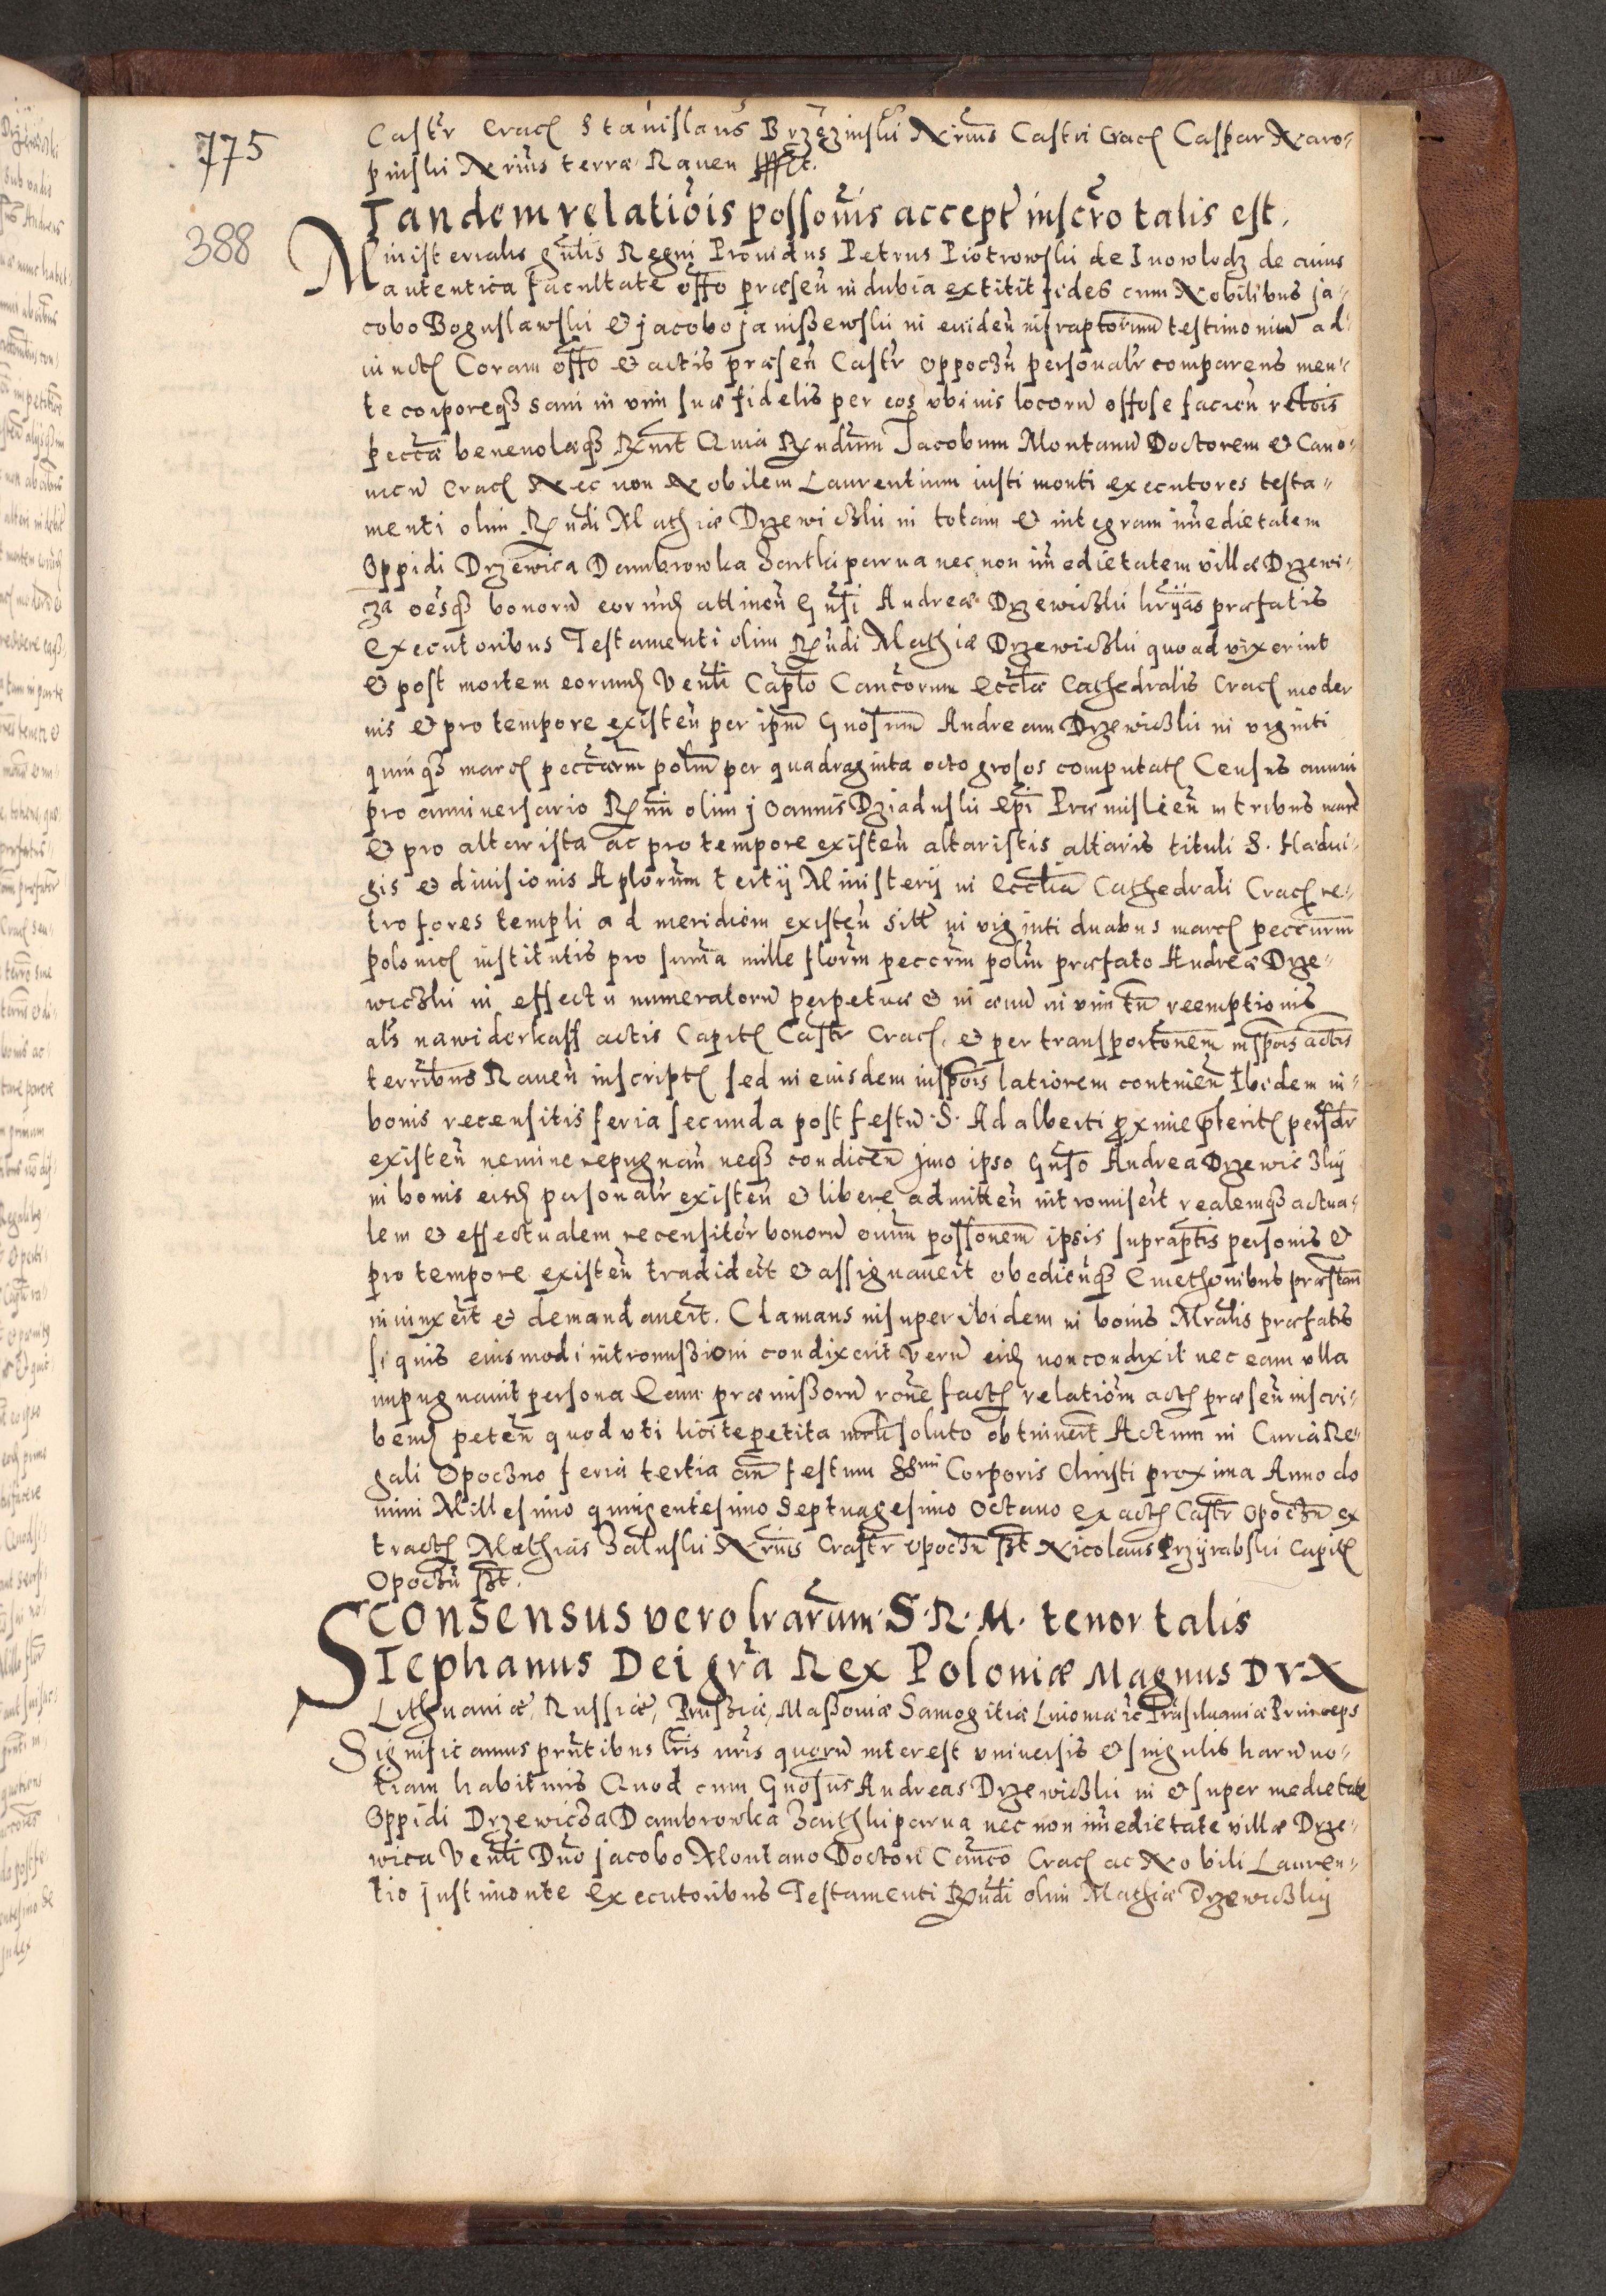 775
388
Castr Crac Stanislaus Brzezinski Nrius Castri Crac Caspar Naro-
pinski Nrius terræ Raven sst.
Tandem relatiois possonis accept inscro talis est.
Ministerialis gnlis Regni Providus Petrus Piotrowski de Inowlodz de cuius
autentica facultate offo præsen indubia extitit fides cum Nobilibus Ja-
cobo Boguslawski & Jacobo Janiszewski in eviden infraptorum testimonium ad-
iunct Coram offo & actis præsen Castr Oppoczn personalr comparens men-
te corporeq sani in vim suæ fidelis per eos ubivis locoru offose facien rectois
peccta benevolæq Rxnrt Quia Rndum Jacobum Montanu Doctorem & Cano-
nicu Crac Nec non Nobilem Laurentium iusti monti executores testa-
menti olim Rndi Mathiæ Drzewiczki in totam & integram imedietatem
Oppidi Drzewica Dambrowka Zantki parva nec non imedietatem villæ Drzewi-
za oesq bonoru eorund attinen Gnsi Andreæ Drzewiczki hrijas præfatis
Executoribus Testamenti olim Rndi Mathiæ Drzewiczki quoad vixerint
& post mortem eorund Venli Caplo Cancorum Eccliæ Cathedralis Crac moder
nis & pro tempore existen per ipm Gnosum Andream Drzewiczki in viginti
quinq marc peccarm polm per quadraginta octo grosos computat Census annui
pro anniversario Rmi olim Joannis Dziaduski Epi Præmislien in tribus marc
& pro altarista ac pro tempore existen altaristis altaris tituli S. Hadui-
gis & divisionis Aplorum tertij Ministerij in Ecclia Cathedrali Crac re-
tro fores templi ad meridiem existen sitt in viginti duabus marc peccurum
polonic institutis pro suma mille florm peccrm polm præfato Andreæ Drze-
wiczki in effectu numeratoru perpetuæ & in ævu in vim tn reemptionis
als nawiderkaff actis Capit Castr Crac. & per transportonem inspois actis
terribus Raven inscript sed in eiusdem inspois latiorem continen Ibidem in-
bonis recensitis feria secunda post festu S. Adalberti proxime pterit persolr
existen nemine repugnan neq condicen Imo ipso Gnso Andrea Drzewiczkij
in bonis eisd personalr existen & libere admitten intromiseit realemq actua-
lem & effectualem recensitor bonoru oium possonem ipsis supraptis personis &
pro tempore existen tradidit & assignaveit obedienq Cmethonibus præstan
iniunxeit & demandaveit. Clamans insuper ibidem in bonis Mralis præfatis
si quis eiusmodi intromissioni condixerit Veru eid non condixit nec eam ulla
impugnavit persona Eam præmissoru rone fact relatiom act præsen inscri-
bend peten quod uti licite petita soluto obtinueit Actum in Curia Re-
gali Opoczno feria tertia an festum SSmi Corporis Christi proxima Anno do
mini Millesimo quingentesimo Septuagesimo Octavo ex act Castr Opoczn ex
tract Mathias Zaluski Nrius Crastr Opoczn sst Nicolaus Przijrabski Capit
Opoczn sst.
Consensus vero lrarum S. R. M. tenor talis
Stephanus Dei gra Rex Poloniæ Magnus Dux
Lithvaniæ, Russiæ, Prussiæ, Massoviæ Samogitiæ Livoniæ ic Trasilvaniæ Princeps
Significamus prntibus lris nris quoru interest universis & singulis haru no-
tiam habituris Quod cum Gnosus Andreas Drzewiczki in & super medietate
Oppidi Drzewicza Dambrowka Zanthki parva nec non imedietate villæ Drze-
wica Venli Dno Jacobo Montano Doctori Canco Crac ac Nobili Lauren-
tio Justimonte Executoribus Testamenti Rndi olim Mathiæ Drzewiczkij